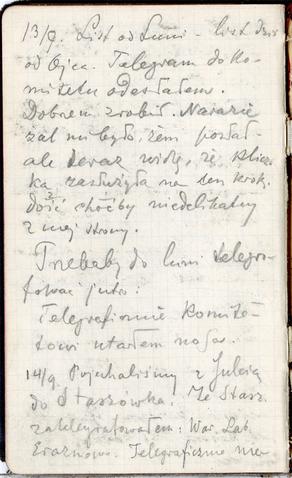 13/9. List od Luni - list dziś
od Ojca. Telegram do Ko-
mitetu odesłałem.
Dobrem zrobił. Narazie
żal mi było, żem posłał -
ale teraz widzę, że Klicz-
ka zasłużyła na ten krok,
dość choćby niedelikatny
z mej strony.
Trzebaby do Luni telegra-
fować jutro:
Telegraficznie Komite-
towi utarłem nosa.
14/9. Pojechaliśmy z Julcią
do Staszówka. Ze Stasz.
zatelegrafowałem: War. Lab.
Erazmowi. Telegraficznie